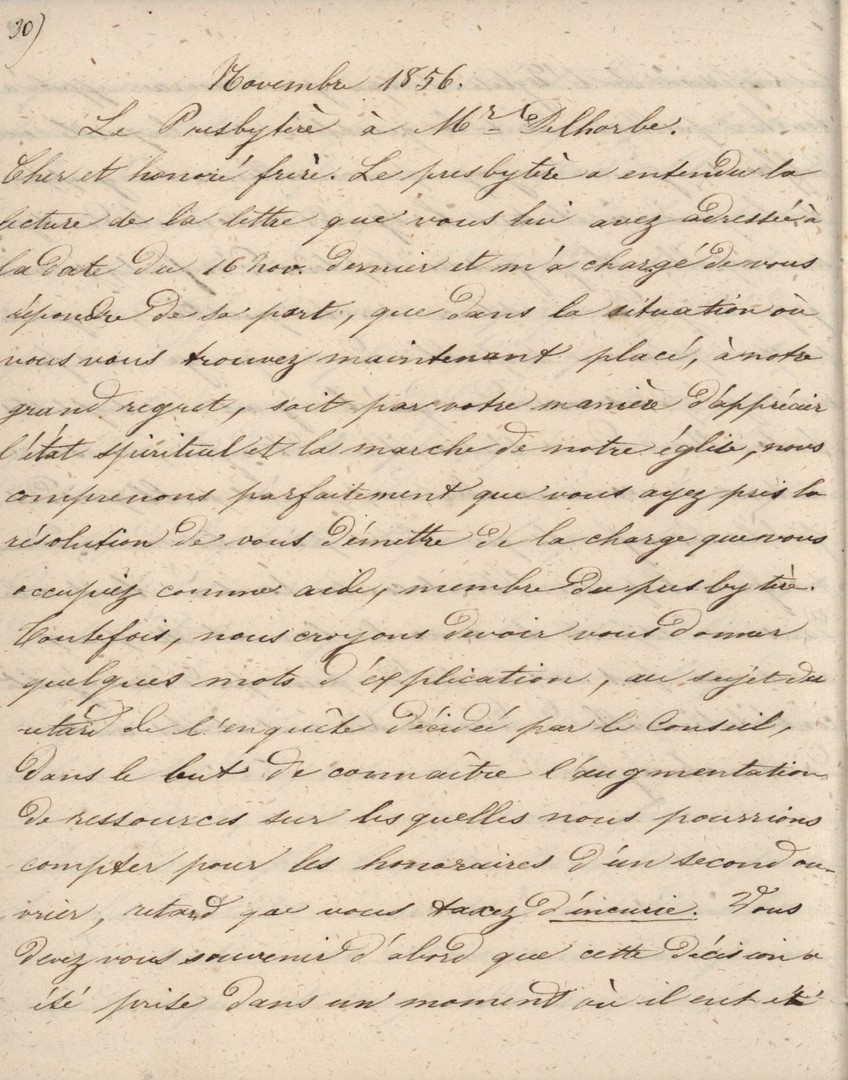 30)
Novembre 1856.
Le Presbytère à Mr. Delhorbe.
Cher et honoré frère. Le presbytère a entendu la
lecture de la lettre que vous lui avez adressée à
la date du 16 Nov. dernier et m'a chargé de vous
répondre de sa part, que dans la situation où
vous vous trouvez maintenant placé, à notre
grand regret, soit par votre manière d'apprécier
l'état spirituel et la marche de notre église, nous
comprenons parfaitement que vous ayez pris la
résolution de vous démettre de la charge que vous
occupiez comme aide, membre du presbytère.
Toutefois, nous croyons devoir vous donner
quelques mots d'explication, au sujet du
retard de l'enquête décidée par le Conseil,
dans le but de connaître l'augmentation
de ressources sur lesquelles nous pourrions
compter pour les honoraires d'un second ou-
vrier, retard que vous taxez d'incurie. Vous
devez vous souvenir d'abord que cette décision a
été prise dans un moment où il eut été